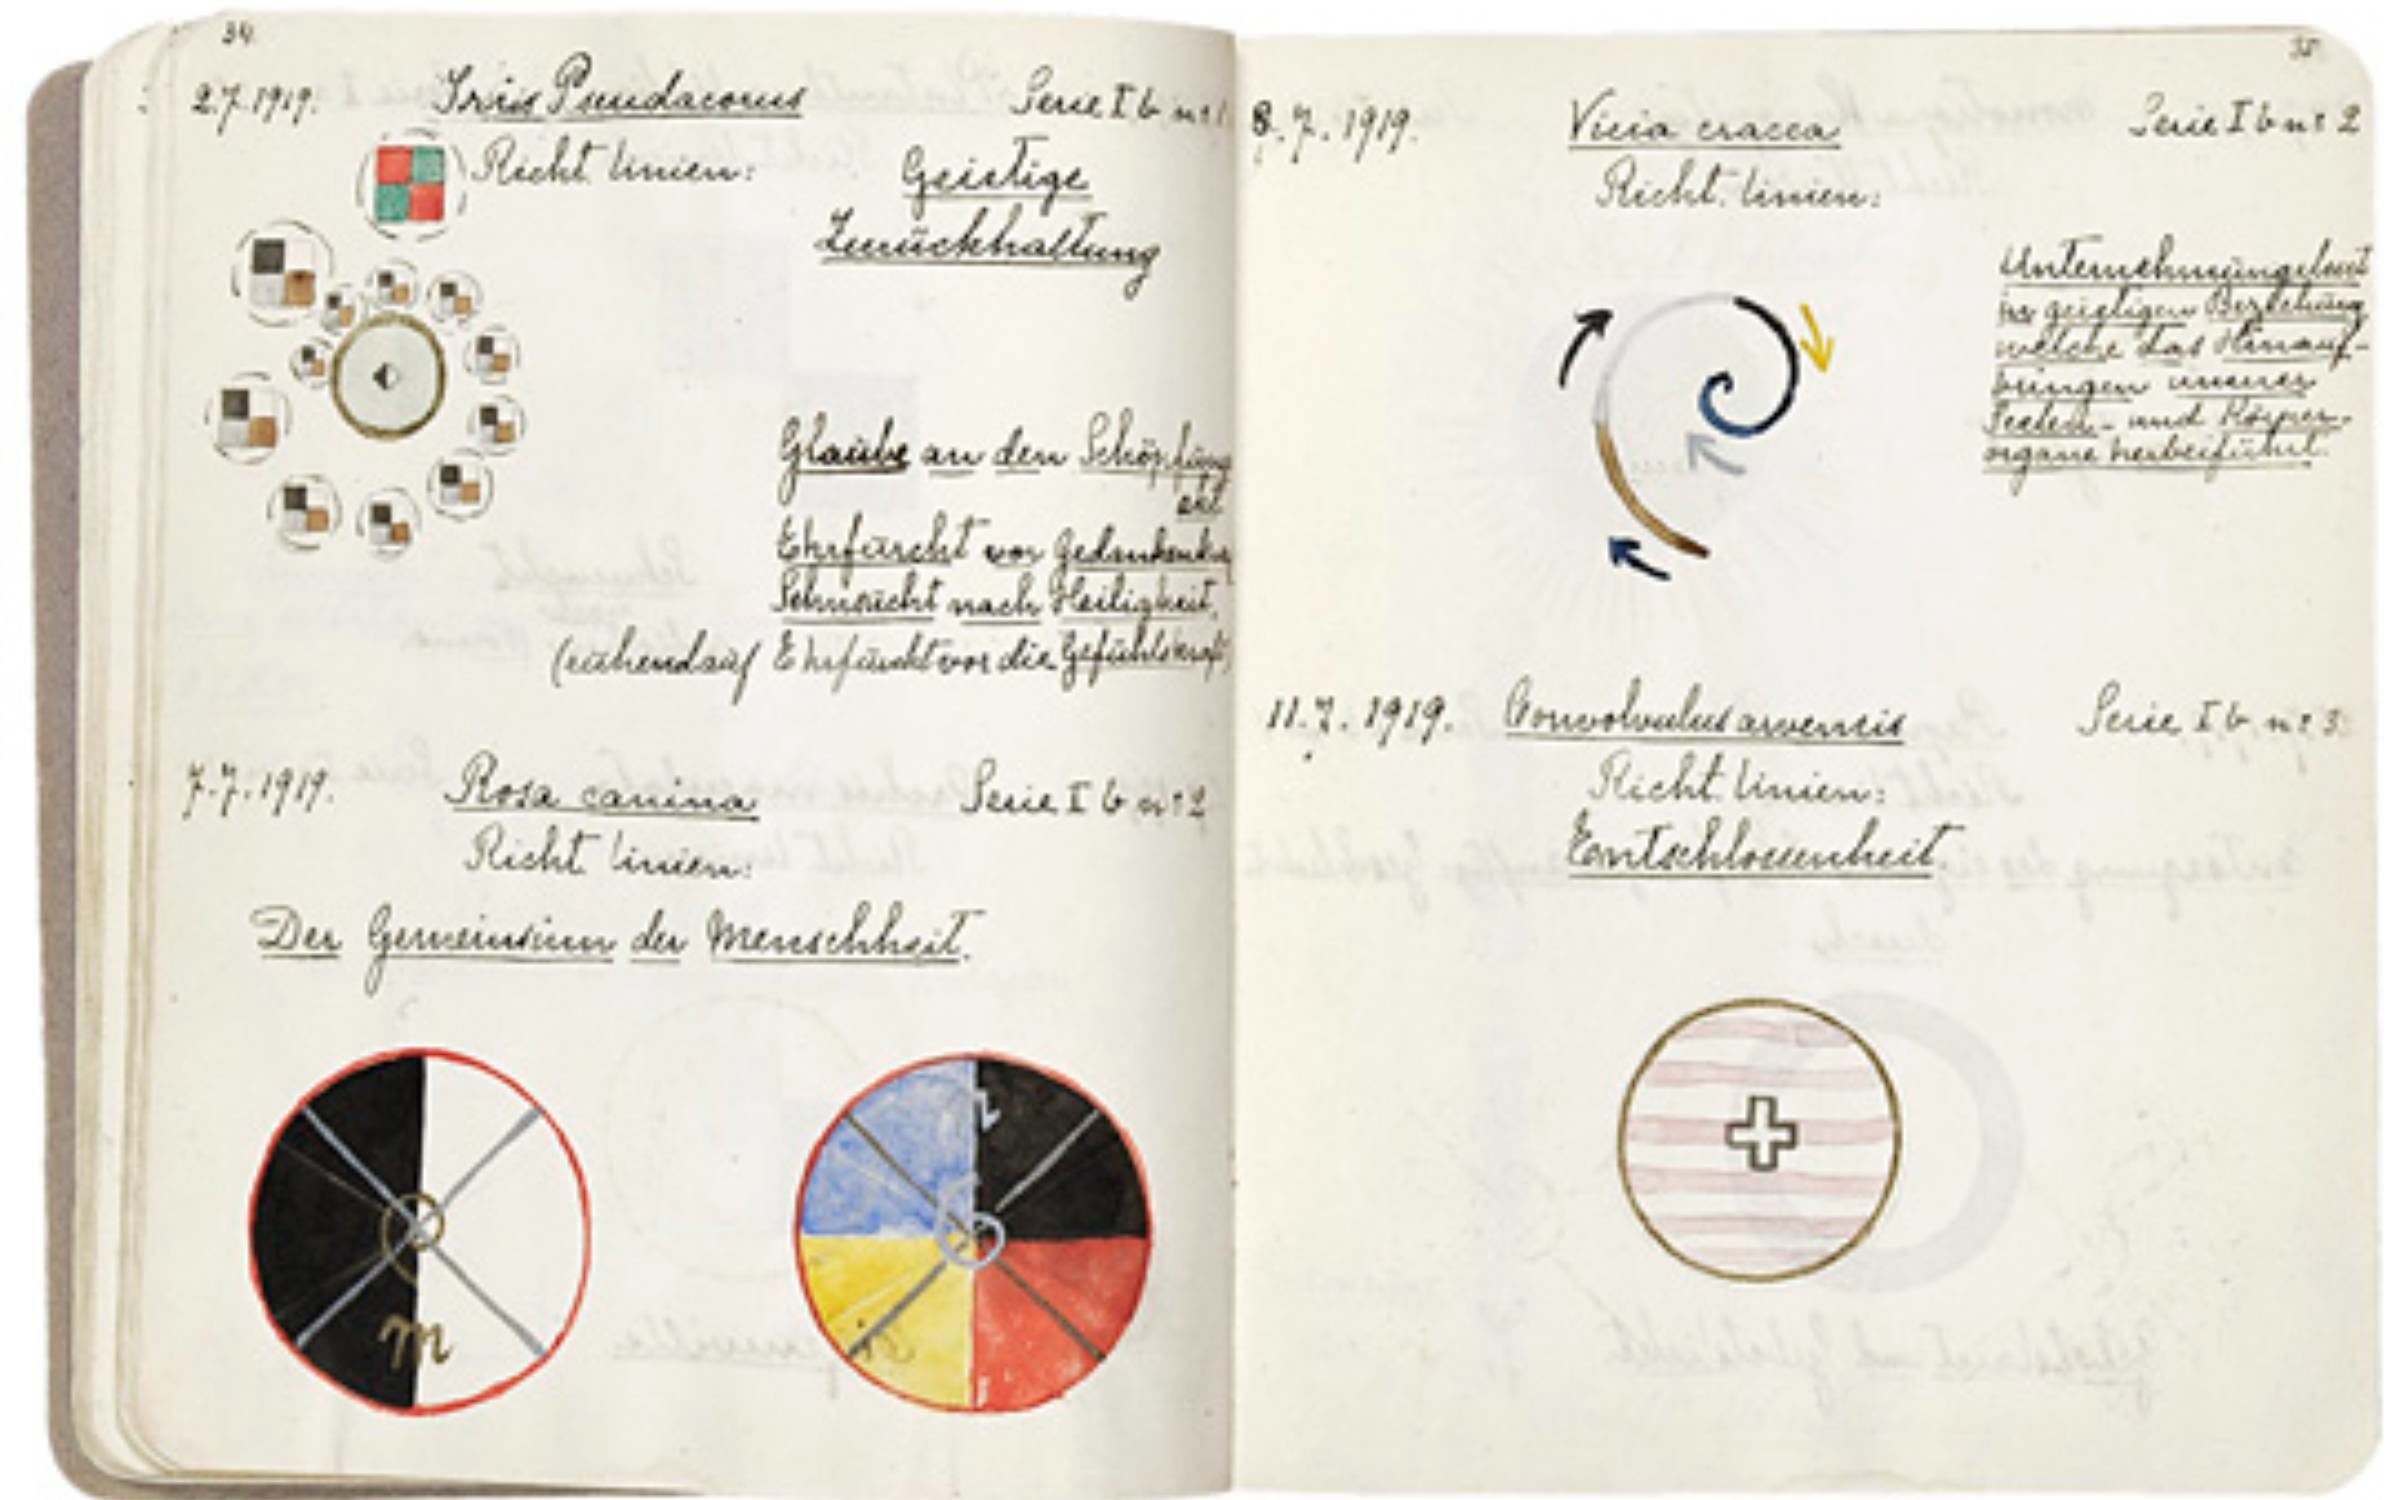 34.
2.7.1919. Iris Pseudacorus Serie I b n:r 1
Richtlinien: Geistige
Zurückhaltung
Glaube an den Schöpfung
Ehrfurcht vor Gedanken
Sehnsucht nach Heiligkeit,
(ruhend auf Ehrfurcht vor die Gefühlskraft)
7.7.1919. Rosa canina Serie I b n:r 2
Richtlinien:
Der Gemeinsinn der Menschheit.
m
35.
8.7.1919. Vicia cracca Serie I b n:r 2
Richtlinien:
Unternehmungslust
in geistigen Beziehung
welche das Hinauf-
bringen unserer
Seelen- und Körper-
organe herbeiführt.
11.7.1919. Convolvulus arvensis Serie I b n:r 3
Richtlinien:
Entschlossenheit